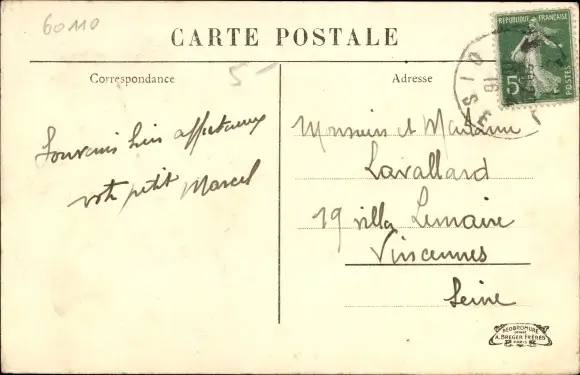 60110
CARTE POSTALE
Correspondance
5-
Adresse
RÉPUBLIQUE FRANÇAISE
5c
POSTES
Souvenirs bien affectueux
votre petit Marcel
Monsieur et Madame
Lavallard
19 villa Lemaire
Vincennes
Seine
NEOBROMURE
A. BREGER FRÈRES
PARIS